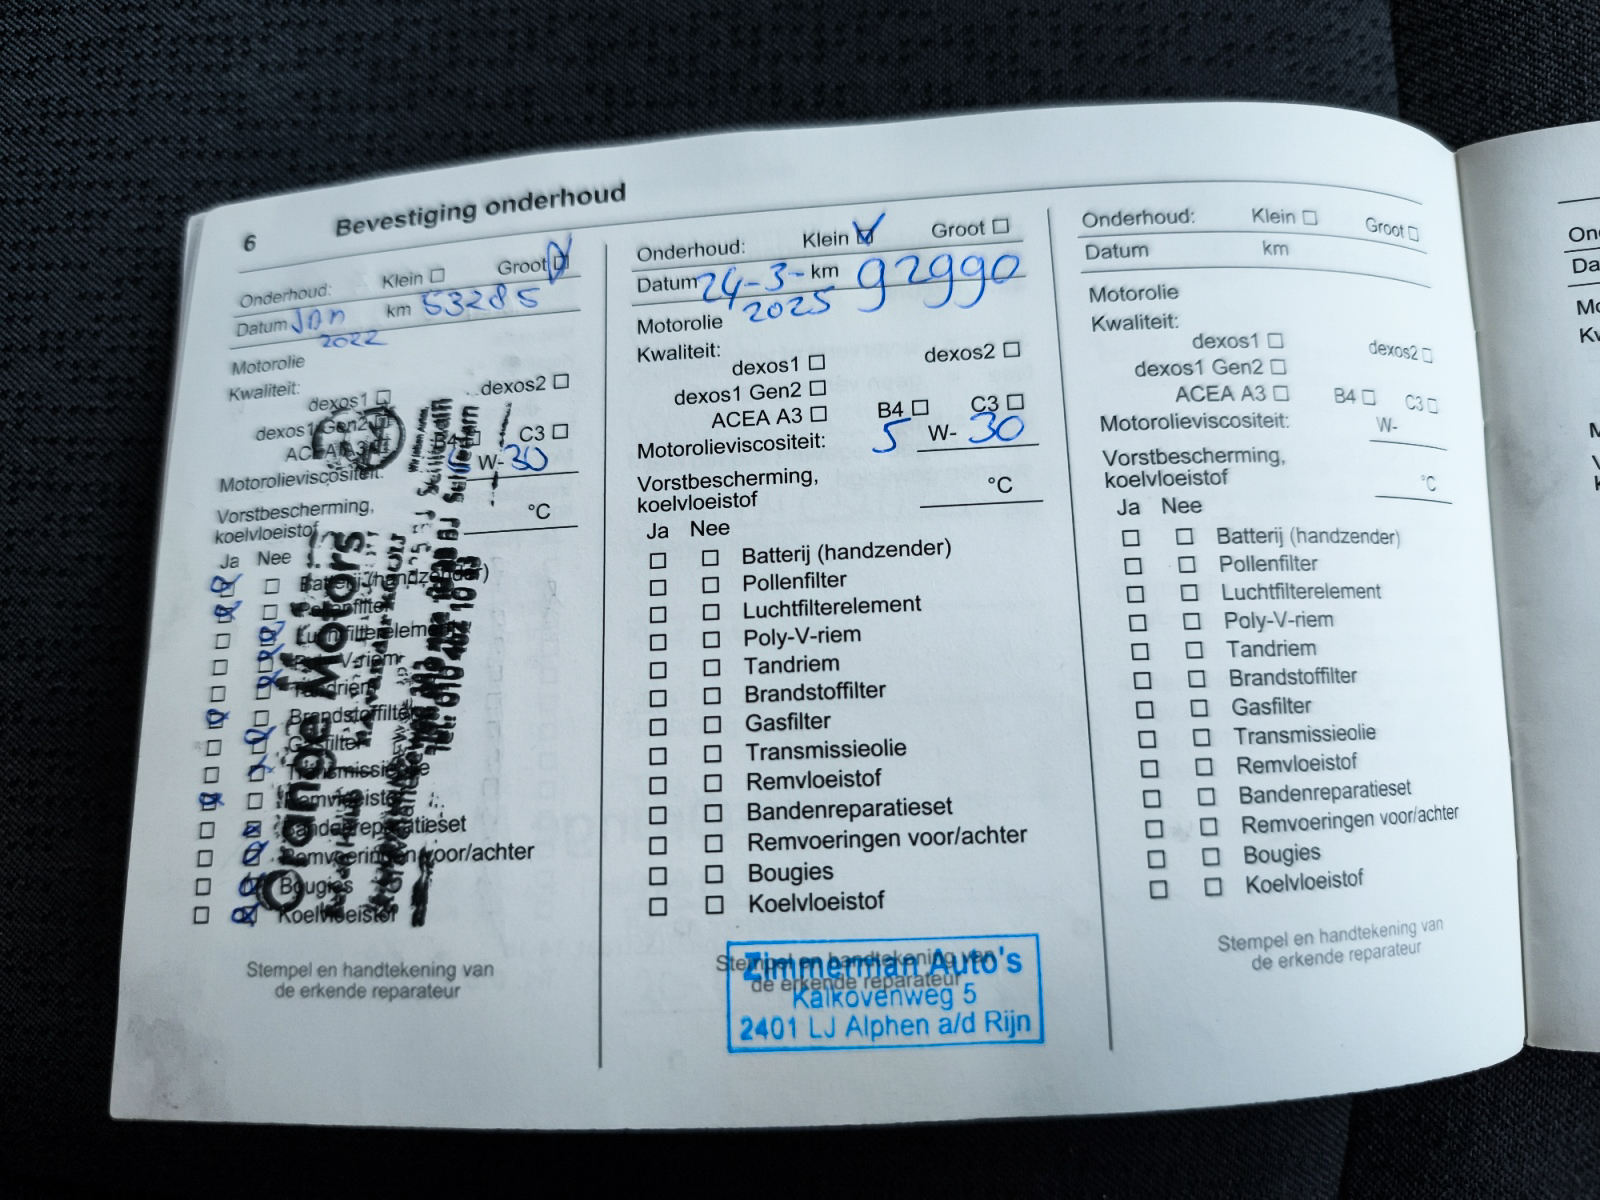 6
Bevestiging onderhoud
Onderhoud: Klein Groot
Datum Jan km 53285
2022
Motorolie
Kwaliteit:
dexos1 dexos2
dexos1 Gen2
ACEA A3 B4 C3
Motorolieviscositeit: 5 W- 30
Vorstbescherming,
koelvloeistof °C
Ja Nee
Batterij (handzender)
Pollenfilter
Luchtfilterelement
Poly-V-riem
Tandriem
Brandstoffilter
Gasfilter
Transmissieolie
Remvloeistof
Bandenreparatieset
Remvoeringen voor/achter
Bougies
Koelvloeistof
Orange Motors
Stempel en handtekening van
de erkende reparateur
Onderhoud: Klein Groot
Datum 24-3- km 92990
2025
Motorolie
Kwaliteit:
dexos1 dexos2
dexos1 Gen2
ACEA A3 B4 C3
Motorolieviscositeit: 5 W- 30
Vorstbescherming,
koelvloeistof °C
Ja Nee
Batterij (handzender)
Pollenfilter
Luchtfilterelement
Poly-V-riem
Tandriem
Brandstoffilter
Gasfilter
Transmissieolie
Remvloeistof
Bandenreparatieset
Remvoeringen voor/achter
Bougies
Koelvloeistof
Stempel en handtekening van
de erkende reparateur
Zimmerman Auto's
Kalkovenweg 5
2401 LJ Alphen a/d Rijn
Onderhoud: Klein Groot
Datum km
Motorolie
Kwaliteit:
dexos1 dexos2
dexos1 Gen2
ACEA A3 B4 C3
Motorolieviscositeit: W-
Vorstbescherming,
koelvloeistof °C
Ja Nee
Batterij (handzender)
Pollenfilter
Luchtfilterelement
Poly-V-riem
Tandriem
Brandstoffilter
Gasfilter
Transmissieolie
Remvloeistof
Bandenreparatieset
Remvoeringen voor/achter
Bougies
Koelvloeistof
Stempel en handtekening van
de erkende reparateur